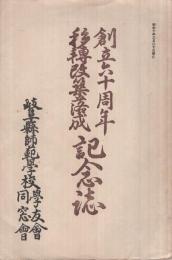 創立六十周年
移轉改築落成
記念誌
岐阜縣師範學校
學友會
同窓會